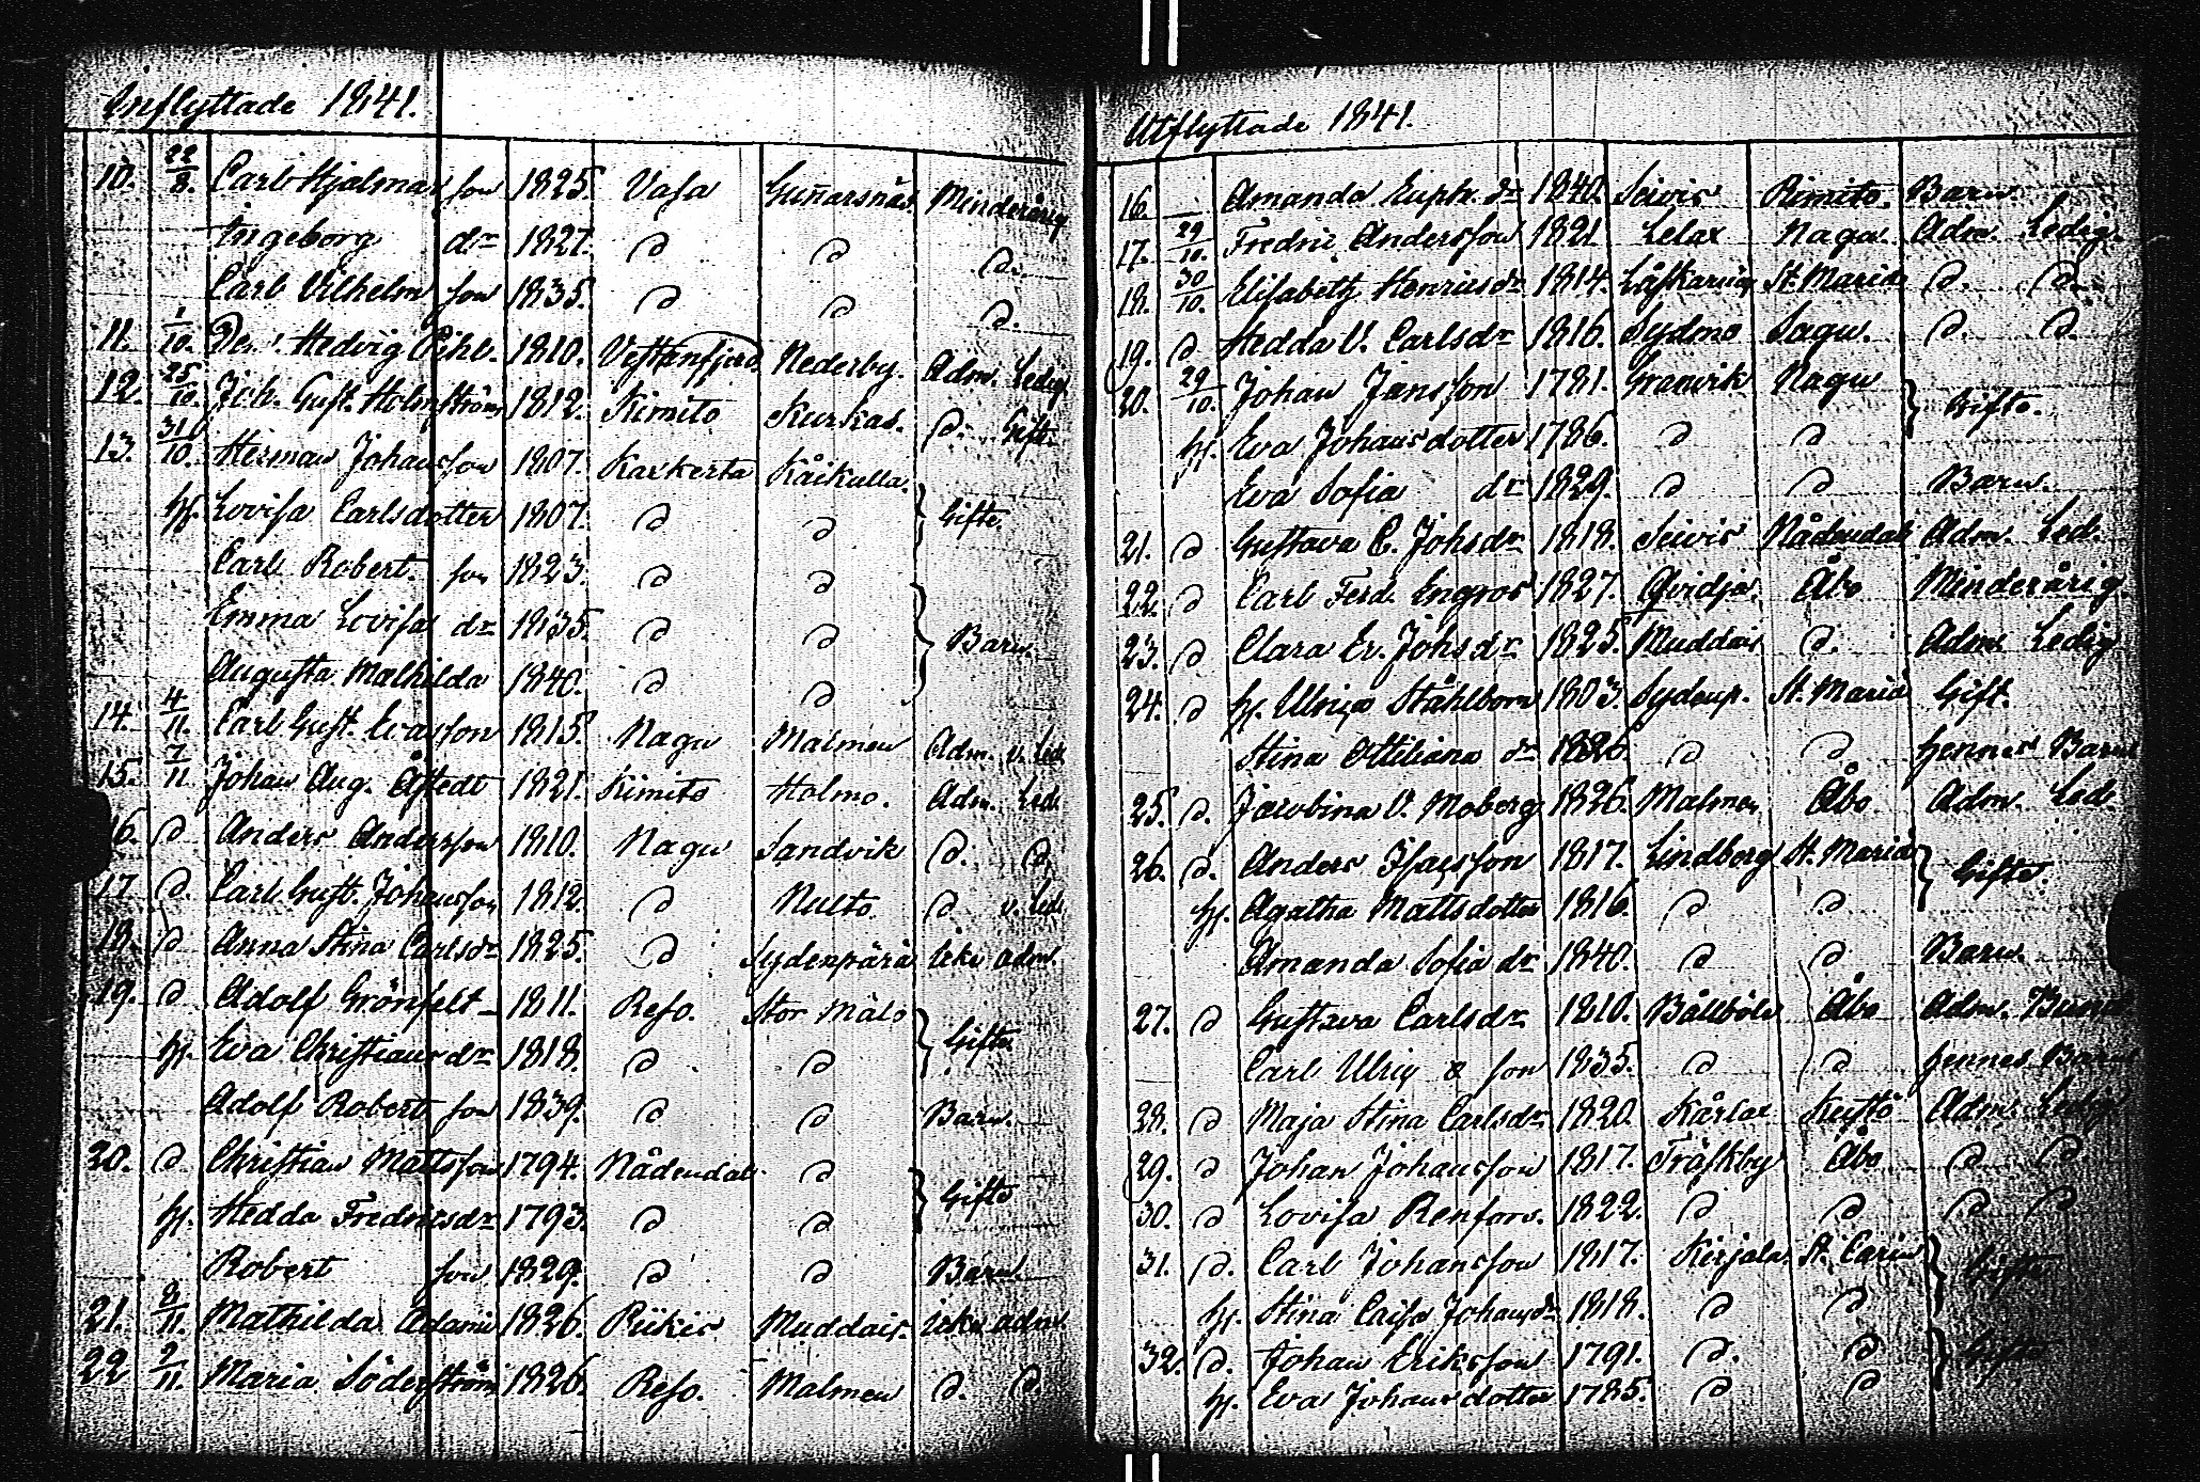 Inflyttade 1841.
10. 22/8. Carl Hjalmar son 1825. Vasa Gunnarsnäs Minderårig
Ingeborg dr 1827. D D D.
Carl Vilhelm son 1835. D D D.
11. 1/10. Hedvig Pihl. 1810. Vestanfjerd Nederby. Adm. Ledig
12. 25/10. Joh. Gust. Holmström 1812. Kimito Kurkas. D. Gift.
13. 31/10. Herman Johansson 1807. Kaxkerta Kåikulla.
hu. Lovisa Carlsdotter 1807. D D Gifte.
Carl Robert. son 1823. D D
Emma Lovisa dr 1835. D D Barn.
Augusta Mathilda 1840. D D
14. 4/11. Carl Gust. 1815. Nagu Malmen Adm. o. Led
15. 7/11 Johan Aug. Åstedt 1821. Kimito Holmo. Adm. Led.
16. D Anders Andersson 1810. Nagu Sandvik D. D.
17. D. Carl Gust. Johansson 1812. D D o. Led
18. D Anna Stina Carlsdr 1825. D Sydenpärä icke adm.
19. D Adolf Grönfelt 1811. Reso. Stor Mälö
hu. Eva Christiansdr 1818. D D Gifte.
Adolf Robert son 1839. D D Barn.
20. D. Christian Mattsson 1794. Nådendal. D
hu. Hedda Fredricsdr 1793. D D Gifte
Robert son. 1829. D D Barn.
21. 8/11. Mathilda 1826. Piikis. Muddais. icke adm
22 9/11. Maria Söderström 1826. Reso. Malmen D. D.
Utflyttade 1841.
16. Amanda Euphr. dr 1840. Seivis Rimito. Barn.
17. 29/10. Fredric Andersson 1821 Lelax Nagu. Adm. Ledig.
18. 30/10. Elisabeth Henricsdr 1814. St. Marie D. D.
19. D Hedda U. Carlsdr 1816. Sydmo Sagu. D. D.
20. 29/10. Johan Jansson 1781. Granvik Nagu Gifte.
hu. Eva Johansdotter 1786. D D
Eva Sofia dr 1829. D D Barn.
21. D Gustava C. Johsdr 1818. Seivis Nådendal Adm. Led.
22. D Carl Ferd. Engros 1827. Qvidja. Åbo Minderårig.
23. D Clara Er. Johsdr 1825. Muddais D. Adm. Ledig
24. D hu. Ulrica Ståhlborn 1803. St. Marie Gift.
Stina Ottiliana dr 1826. D D hennes Barn
25. D. Jacobina U. Moberg 1826. Malmen Åbo Adm. Led.
26. D. Anders Isacsson 1817. Lindberg St. Marie Gifte.
hu. Agatha Mattsdotter 1816. D D
Amanda Sofia dr 1840. D D Barn.
27. D Gustava Carlsdr 1810. Bällböle Åbo Adm.
Carl Ulric son 1835. D D hennes Barn
28. D Maja Stina Carlsdr 1820. Kårlax Kustö Adm. Ledig
29. D Johan Johansson 1817. Träskby Åbo D D
30. D Lovisa Renfors. 1822. D D D D
31. D. Carl Johansson 1817. Kirjala. St. Carin Gifte
hu. Stina Caisa Johansdr 1818. D D
32. D. Johan Eriksson 1791. D. D Gifte
hu. Eva Johansdotter 1785. D D